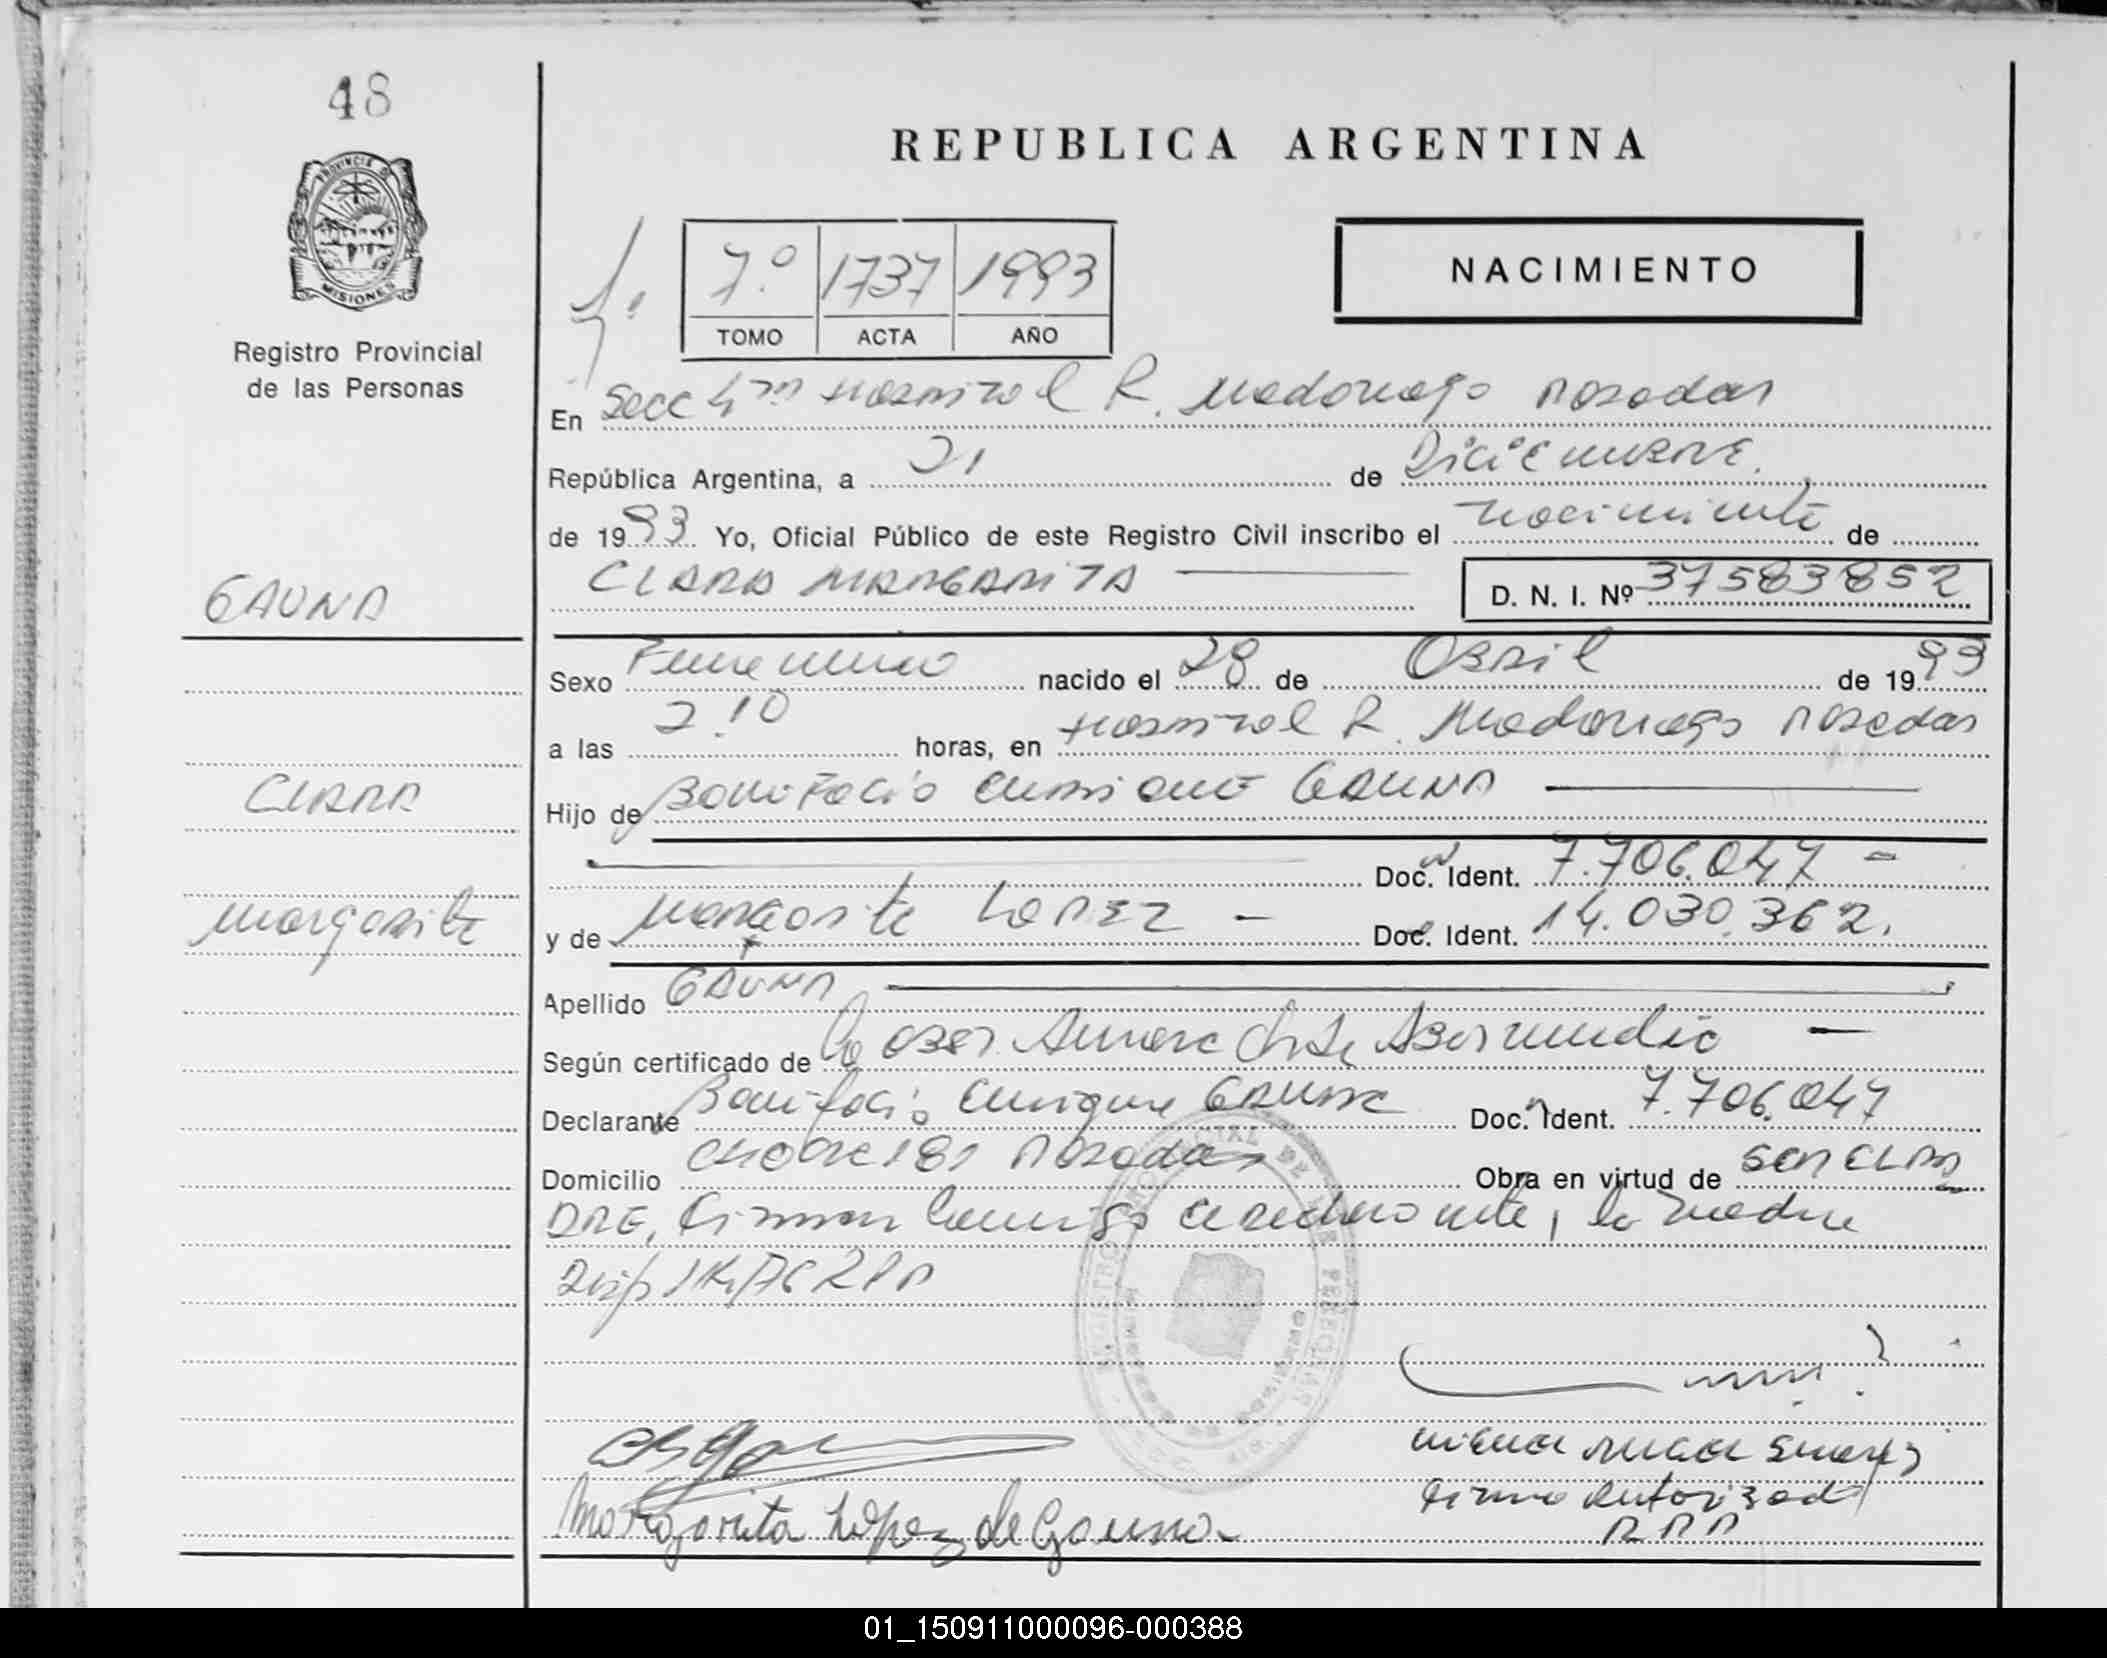 48
PROVINCIA DE
MISIONES
Registro Provincial
de las Personas
REPUBLICA ARGENTINA
7º 1737 1993
TOMO ACTA AÑO
NACIMIENTO
En Secc 4ta Hospital R. Madariaga Posadas
República Argentina, a 21 de Diciembre.
de 1993 Yo, Oficial Público de este Registro Civil inscribo el nacimiento de
CLARA MARGARITA D. N. I. Nº 37583852
GAUNA
Sexo Femenino nacido el 28 de Abril de 1993
a las 2.10 horas, en Hospital R. Madariaga Posadas
CLARA
Hijo de Bonifacio Enrique GAUNA
Doc. Ident. 7.706.047 -
Margarita
y de Margarita LOPEZ - Doc. Ident. 14.030.362.
Apellido GAUNA
Según certificado de la Obst.
Declarante Bonifacio Enrique GAUNA Doc. Ident. 7.706.047
Domicilio 181 Posadas Obra en virtud de ser el
Firman conmigo el declarante, la madre
Margarita López de Gauna
Firma Autorizada
01_150911000096-000388